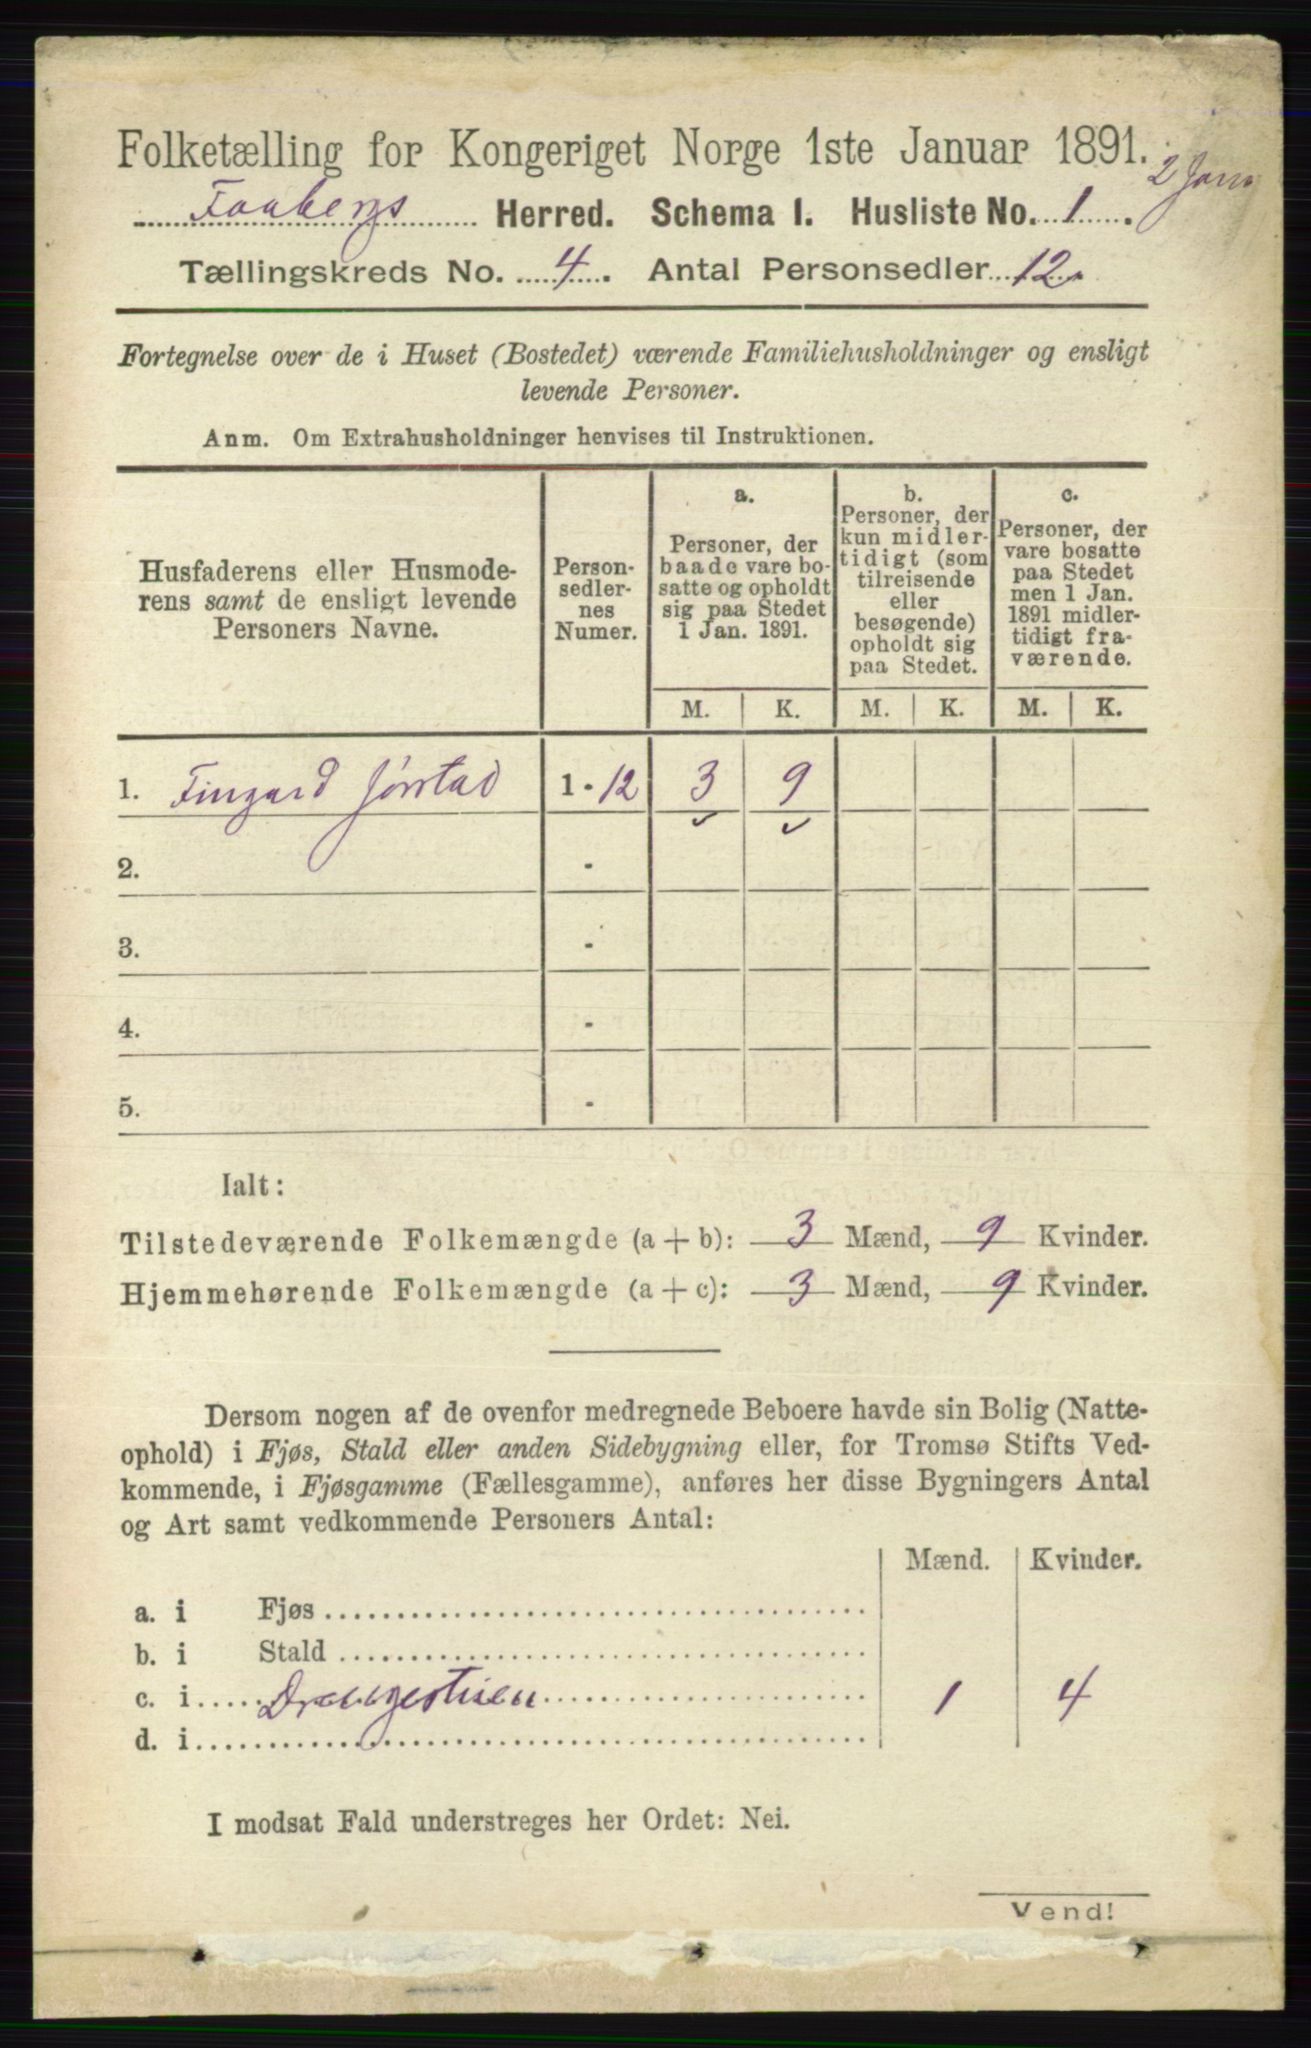 Folketælling for Kongeriget Norge 1ste Januar 1891.
2 Jan
Faabergs Herred. Schema I. Husliste No. 1.
Tællingskreds No. 4. Antal Personsedler 12.
Fortegnelse over de i Huset (Bostedet) værende Familiehusholdninger og ensligt
levende Personer.
Anm. Om Extrahusholdninger henvises til Instruktionen.
Husfaderens eller Husmode-
rens samt de ensligt levende
Personers Navne.
Person-
sedler-
nes
Numer.
a.
Personer, der
baade vare bo-
satte og opholdt
sig paa Stedet
1 Jan. 1891.
b.
Personer, der
kun midler-
tidigt (som
tilreisende
eller
besøgende)
opholdt sig
paa Stedet.
c.
Personer, der
vare bosatte
paa Stedet
men 1 Jan.
1891 midler-
tidigt fra-
værende.
M. K. M. K. M. K.
1. Jørstad 1 - 12 3 9
2. -
3. -
4. -
5. -
Ialt:
Tilstedeværende Folkemængde (a + b): 3 Mænd, 9 Kvinder.
Hjemmehørende Folkemængde (a + c): 3 Mænd, 9 Kvinder.
Dersom nogen af de ovenfor medregnede Beboere havde sin Bolig (Natte-
ophold) i Fjøs, Stald eller anden Sidebygning eller, for Tromsø Stifts Ved-
kommende, i Fjøsgamme (Fællesgamme), anføres her disse Bygningers Antal
og Art samt vedkommende Personers Antal:
Mænd. Kvinder.
a. i Fjøs
b. i Stald
c. i Drengestuen 1 4
d. i
I modsat Fald understreges her Ordet: Nei.
Vend!